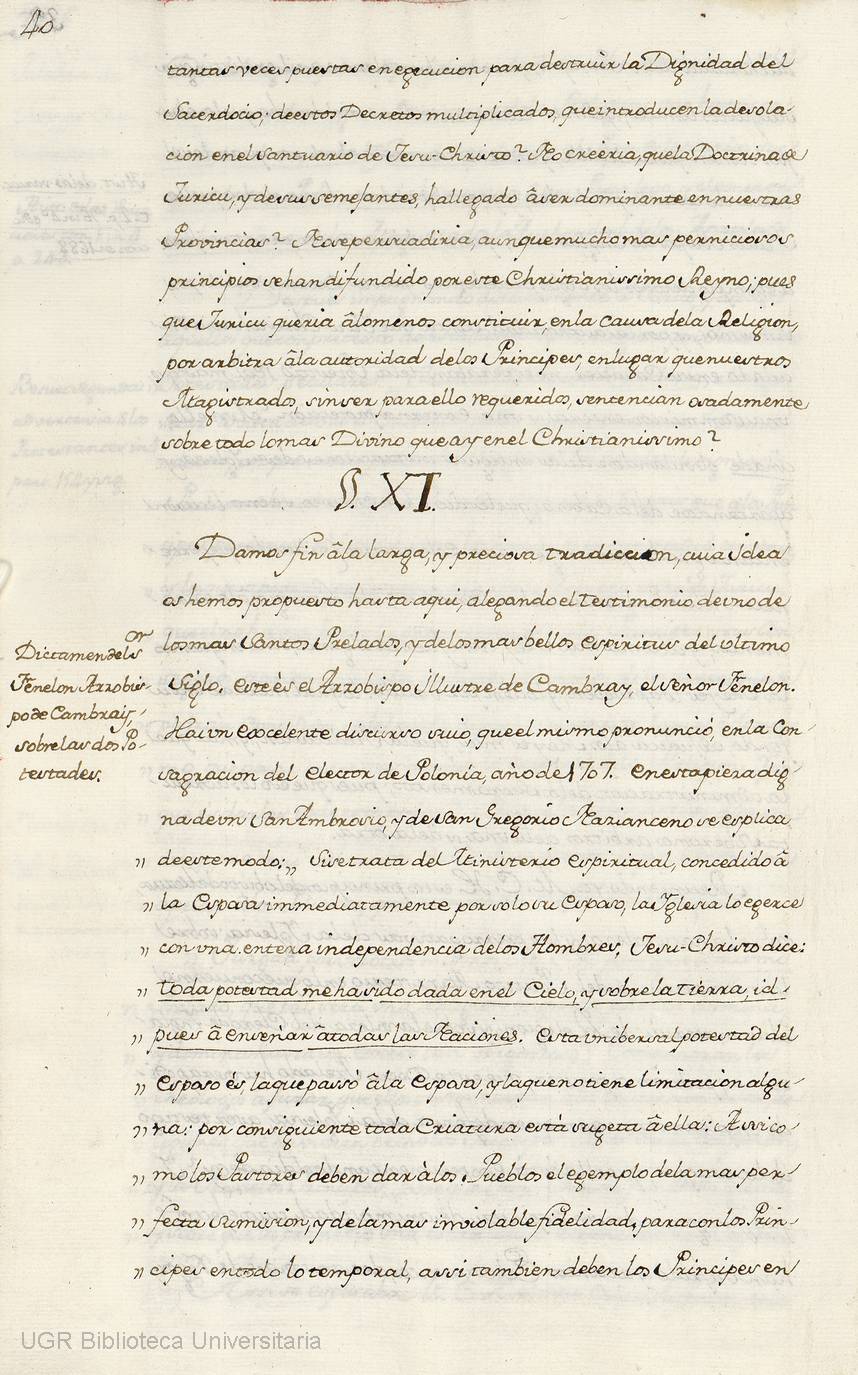 40
tantas veces puestas en egecucion para destruir la Dignidad del
Sacerdocio; de estos Decretos multiplicados, que introducen la desola-
ción en el Santuario de Jesu-Christo? No creèria, que la Doctrina de
Juricu, y de sus semejantes, ha llegado â ser dominante en nuestras
Provincias? No se persuadiria, aunque mucho mas perniciosos
principios se han difundido por este Christianissimo Reyno; pues
que Juricu queria âlo menos constituir, en la Causa de la Religion,
por arbitra âla autoridad de los Principes, en lugar que nuestros
Magistrados, sin ser para ello requeridos, sentencian osadamente
sobre todo lo mas Divino que ay en el Christianissimo?
§. XI.
Damos fin âla larga, y preciosa tradiccion, cuia idea
os hemos propuesto hasta aqui, alegando el testimonio de uno de
los mas Santos Prelados, y de los mas bellos espiritus del ultimo
Siglo. este ès el Arzobispo Illustre de Cambray, el señor Fenelon.
Hai un excelente discurso suio, que el mismo pronunció, en la Con-
sagracion del elector de Polonia, año de 1707. en esta pieza dig-
na de un San Ambrosio, y de San Gregorio Nazianceno se esplica
„ de este modo: „ Si se trata del Ministerio espiritual, concedido â
„ la Esposa immediatamente por solo su Esposo, la Yglesia lo egerce
„ con una entera independencia de los Hombres; Jesu-Christo dice:
„ toda potestad me ha sido dada en el Cielo, y sobre la tierra, id
„ pues â enseñar â todas las Naciones. esta unibersal potestad del
„ esposo és, la que passó âla esposa, y la que no tiene limitacion algu-
„ na: por consiguiente toda Criatura està sugeta â ella: Assi co-
„ mo los Pastores deben dar àlos Pueblos el egemplo de la mas per-
„ fecta sumision, y de la mas inviolable fidelidad, para con los Prin-
„ cipes en todo lo temporal, assi tambien deben los Principes en
Dictamen del Sor
Fenelon Arzobis-
po de Cambray,
sobre las dos Po-
testades.
UGR Biblioteca Universitaria